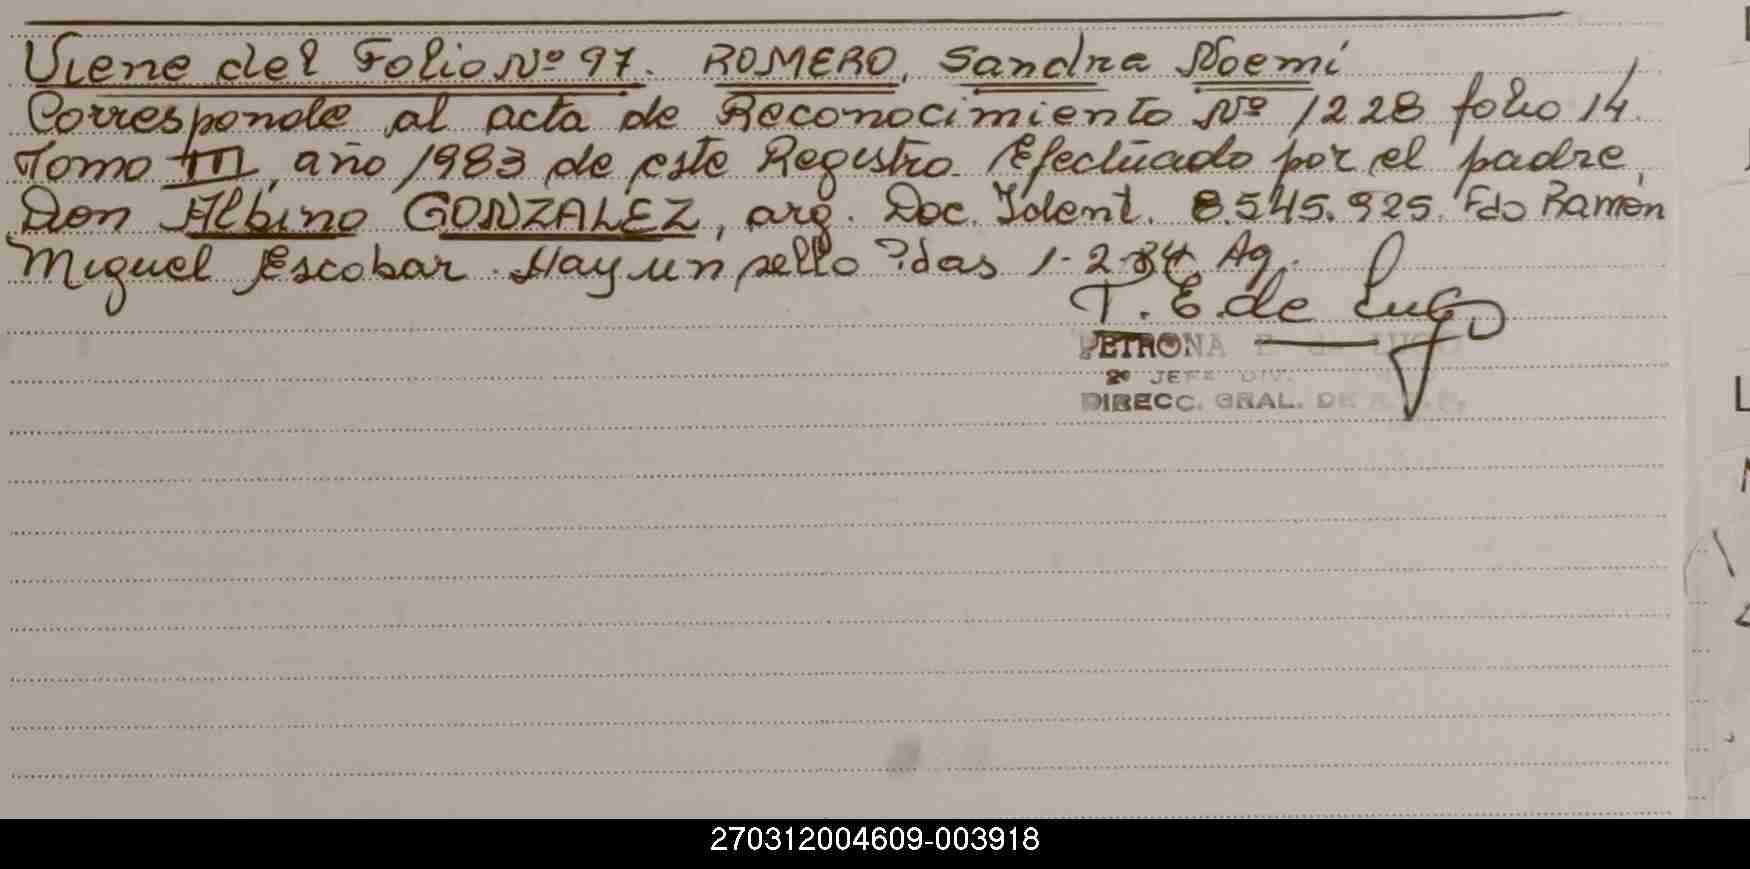 Viene del Folio Nº 97. ROMERO, Sandra Noemí
Corresponde al acta de Reconocimiento Nº 1228 folio 14.
Tomo III, año 1983 de este Registro. Efectuado por el padre,
Don Albino GONZALEZ, arg. Doc. Ident. 8.545.925. Fdo Ramón
Miguel Escobar. Hay un sello ?das 1-2-84. Ag.
T. E. de Lugo
PETRONA E. de LUGO
2º JEFE DIV.
DIRECC. GRAL. DE
270312004609-003918